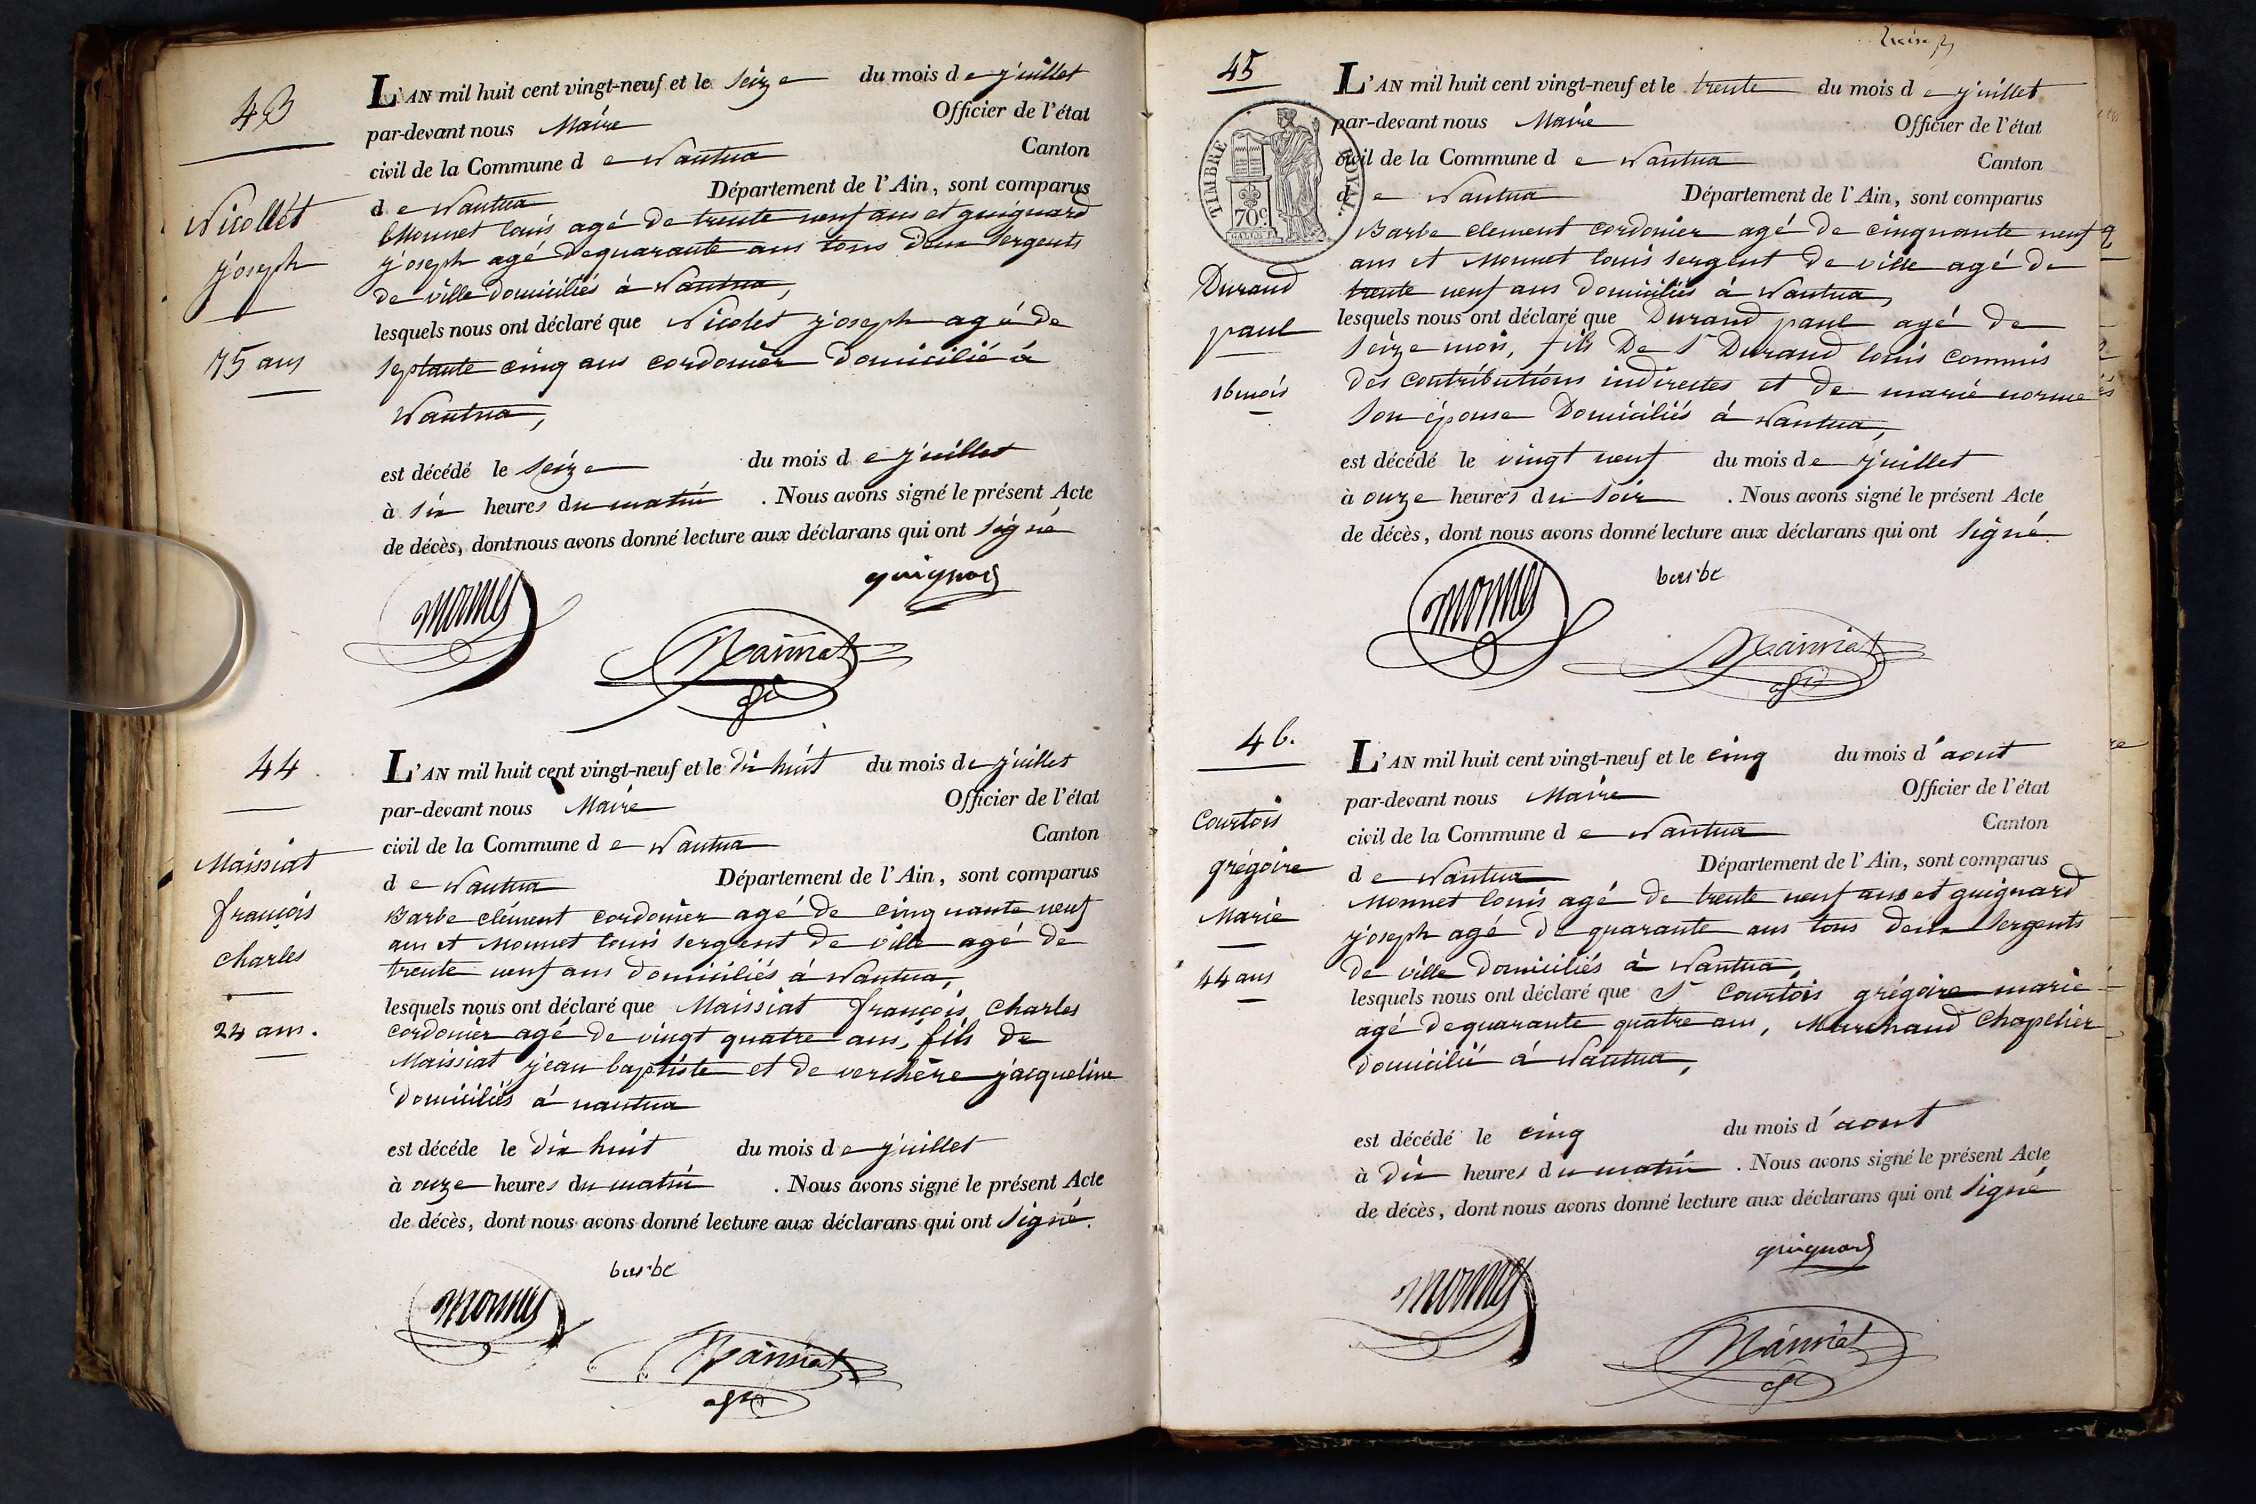 43
Nicollet
joseph
75 ans
L'AN mil huit cent vingt-neuf et le seize du mois de juillet
par-devant nous Maire Officier de l'état
civil de la Commune de Nantua Canton
de Nantua Département de l'Ain, sont comparus
Monnet louis agé de trente neuf ans et guignard
joseph agé de quarante ans tous deux sergents
de ville domiciliés à Nantua,
lesquels nous ont déclaré que Nicolet joseph agé de
septante cinq ans cordonier domicilié à
Nantua,
est décédé le seize du mois de juillet
à six heures du matin . Nous avons signé le présent Acte
de décès, dont nous avons donné lecture aux déclarans qui ont signé
guignard
monnet
44
Maissiat
françois
charles
24 ans.
L'AN mil huit cent vingt-neuf et le dix huit du mois de juillet
par-devant nous Maire Officier de l'état
civil de la Commune de Nantua Canton
de Nantua Département de l'Ain, sont comparus
Barbe clément cordonier agé de cinquante neuf
ans et Monnet louis sergent de ville agé de
trente neuf ans domiciliés à Nantua,
lesquels nous ont déclaré que Maissiat françois charles
cordonier agé de vingt quatre ans, fils de
Maissiat jean baptiste et de verchère jacqueline
domiciliés à nantua
est décéde le dix huit du mois de juillet
à onze heures du matin . Nous avons signé le présent Acte
de décès, dont nous avons donné lecture aux déclarans qui ont signé.
barbe
monnet
45
TIMBRE ROYAL.
70c
Durand
paul
16 mois
L'AN mil huit cent vingt-neuf et le trente du mois de juillet
par-devant nous Maire Officier de l'état
civil de la Commune de Nantua Canton
de Nantua Département de l'Ain, sont comparus
Barbe clement cordonier agé de cinquante neuf
ans et Monnet louis sergent de ville agé de
trente neuf ans domiciliés à Nantua,
lesquels nous ont déclaré que Durand paul agé de
seize mois, fils De Sr Durand louis commis
des contributions indirectes et de marie
son épouse Domiciliés à Nantua,
est décédé le vingt neuf du mois de juillet
à onze heures du soir . Nous avons signé le présent Acte
de décès, dont nous avons donné lecture aux déclarans qui ont signé.
barbe
monnet
46.
Courtois
grégoire
Marie
44 ans
L'AN mil huit cent vingt-neuf et le cinq du mois d'aout
par-devant nous Maire Officier de l'état
civil de la Commune de Nantua Canton
de Nantua Département de l'Ain, sont comparus
Monnet louis agé de trente neuf ans et guignard
joseph agé de quarante ans tous deux sergents
de ville domiciliés à Nantua,
lesquels nous ont déclaré que Sr Courtois grégoire marie
agé de quarante quatre ans, Marchand Chapelier
domicilié à Nantua,
est décédé le cinq du mois d'aout
à dix heures du matin . Nous avons signé le présent Acte
de décès, dont nous avons donné lecture aux déclarans qui ont signé
guignard
monnet